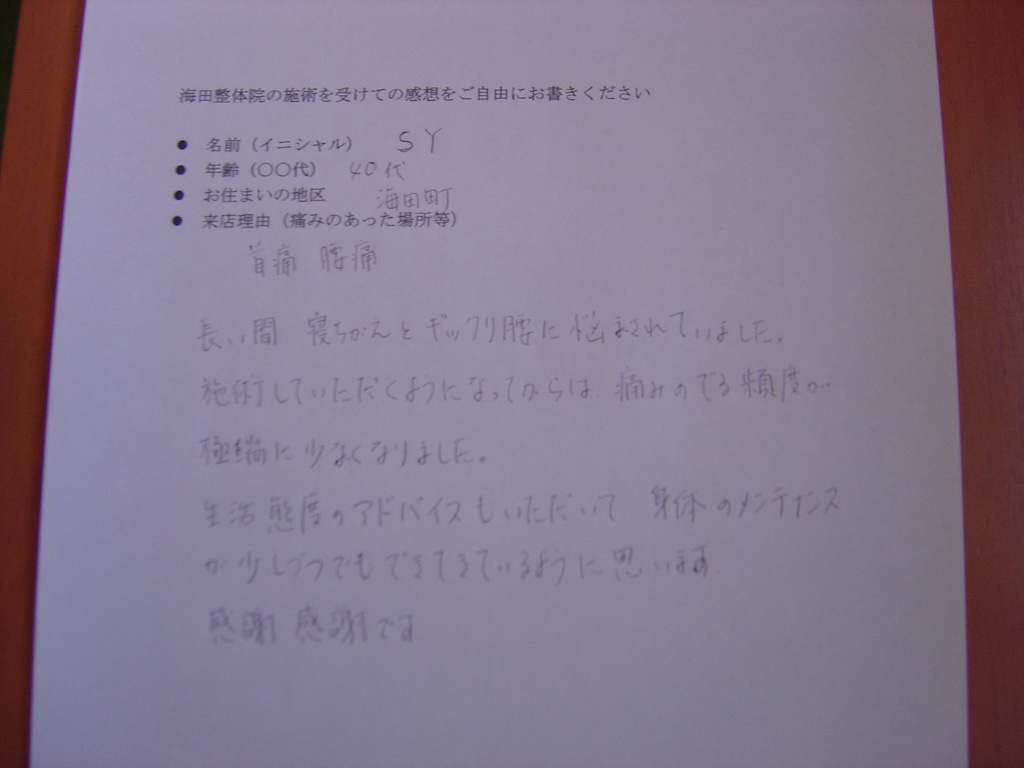 海田整体院の施術を受けての感想をご自由にお書きください
● 名前（イニシャル） SY
● 年齢（〇〇代） 40代
● お住まいの地区 海田町
● 来店理由（痛みのあった場所等）
首痛 腰痛
長い間 寝ちがえとギックリ腰に悩まされていました。
施術していただくようになってからは、痛みのでる頻度が
極端に少なくなりました。
生活態度のアドバイスもいただいて、身体のメンテナンス
が少しづつでもできてきているように思います
感謝 感謝です